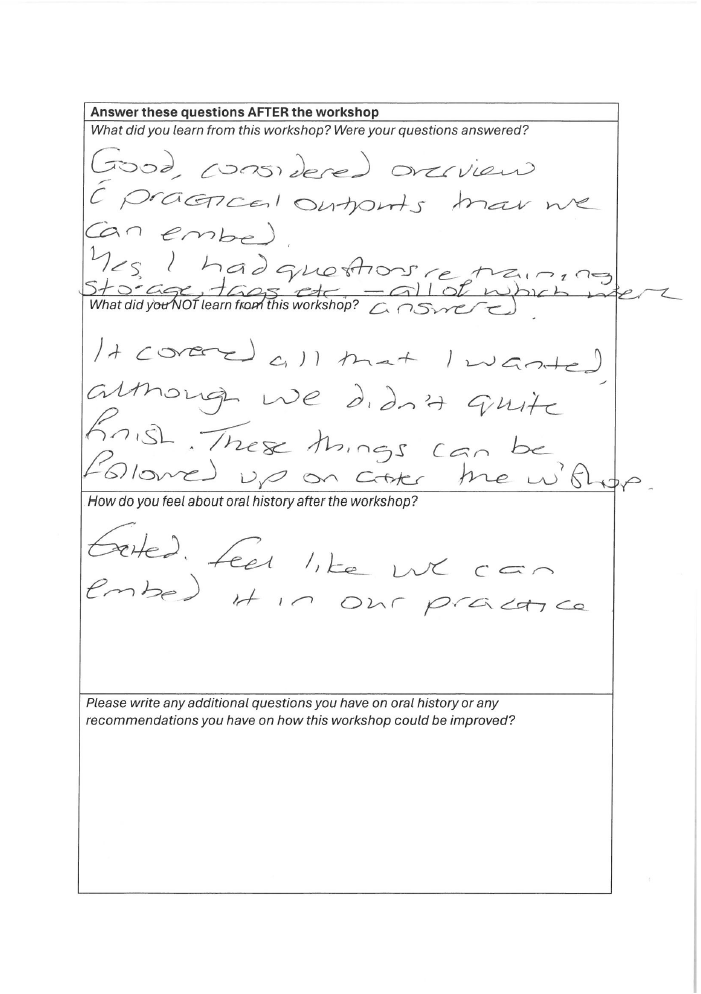 Answer these questions AFTER the workshop
What did you learn from this workshop? Were your questions answered?
Good, considered overview
c̄ practical outputs that we
can embed.
Yes, I had questions re training,
storage, tags etc. – all of which were
What did you NOT learn from this workshop? answered.
It covered all that I wanted,
although we didn't quite
finish. These things can be
followed up on after the w'shop.
How do you feel about oral history after the workshop?
feel like we can
embed it in our practice
Please write any additional questions you have on oral history or any
recommendations you have on how this workshop could be improved?